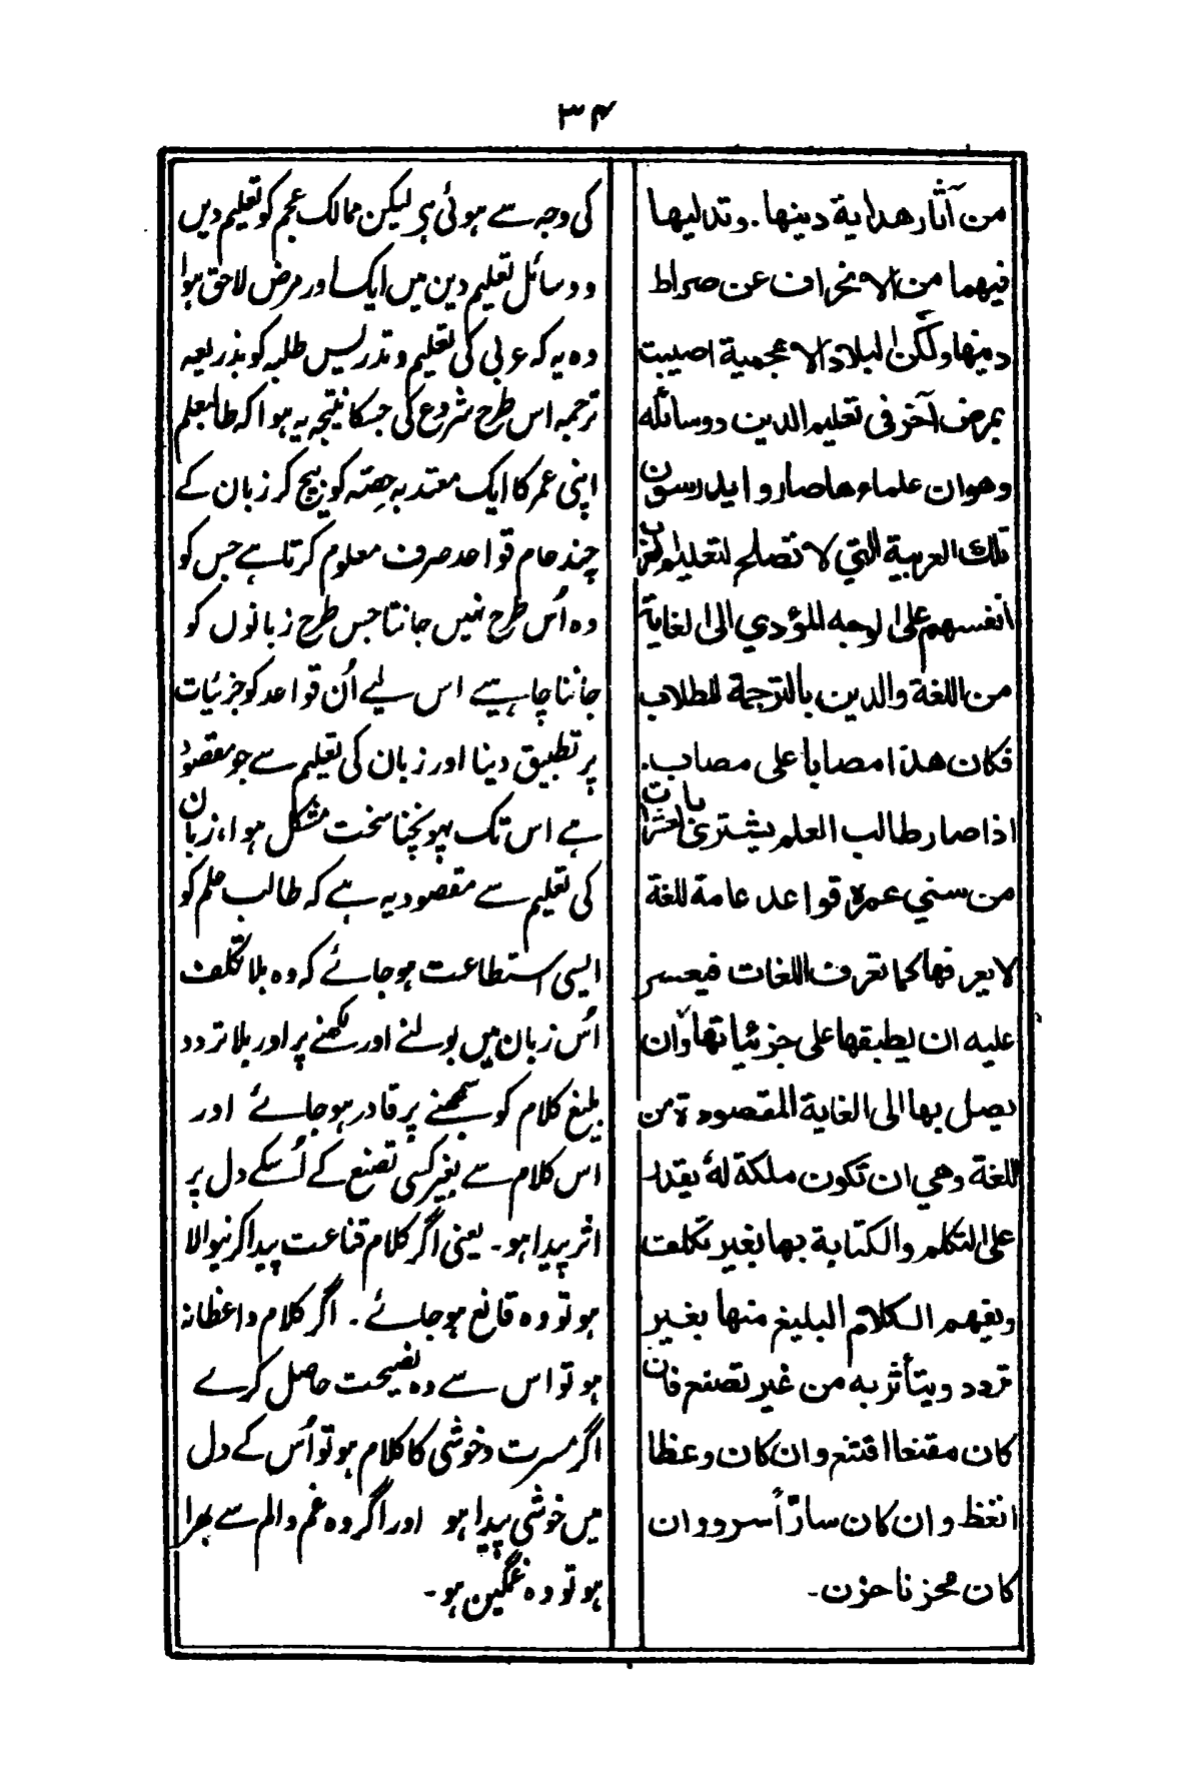 ۳۴
من آثار هداية دينها. وتدليها
فيهما من الانحراف عن صراط
دينها ولكن البلاد الاعجمية اصيبت
بمرض آخر فى تعليم الدين ووسائله
وهو ان علماءها صاروا يدرسون
تلك العربية التي لا تصلح لتعليم
انفسهم على الوجه المؤدي الى الغاية
من اللغة والدين بالترجمة للطلاب
فكان هذا مصابا على مصاب.
اذا صار طالب العلم يشتري
من سني عمره قواعد عامة للغة
لا يعرفها كما تعرف اللغات فيعسر
عليه ان يطبقها على جزئياتها وان
يصل بها الى الغاية المقصودة من
اللغة وهي ان تكون ملكة لهٗ يقدر
على التكلم والكتابة بها بغير تكلف
ويفهم الكلام البليغ منها بغير
تردد ويتأثر به من غير تصنع فان
كان مقنعا اقتنع وان كان وعظا
اتعظ وان كان سارّاً سرو وان
كان محزنا حزن۔
کی وجہ سے ہوئی ہی لیکن ممالک عجم کو تعلیم دیں
و وسائل تعلیم دین میں ایک اور مرض لاحق ہوا
وہ یہ کہ عربی کی تعلیم و تدریس طلبہ کو بذریعہ
ترجمہ اس طرح شروع کی جسکا نیتجہ یہ ہوا کہ طالبعلم
اپنی عمر کا ایک معتد بہ حصّہ کو بیچ کر زبان کے
چند عام قواعد صرف معلوم کرتا ہے جس کو
وہ اُس طرح نہیں جانتا جس طرح زبانوں کو
جاننا چاہیے اس لیے اُن قواعد کو جزئیات
پر تطبیق دینا اور زبان کی تعلیم سے جو مقصود
ہے اس تک پہونچنا سخت مشکل ہوا، زبان
کی تعلیم سے مقصود یہ ہے کہ طالب علم کو
ایسی استطاعت ہو جائے کہ وہ بلا تکلف
اُس زبان میں بولنے اور لکھنے پر اور بلا تردد
بلیغ کلام کو سمجھنے پر قادر ہو جائے اور
اس کلام سے بغیر کسی تصنع کے اُسکے دل پر
اثر پیدا ہو۔ یعنی اگر کلام قناعت پیدا کرنیوالا
ہو تو وہ قانع ہو جائے۔ اگر کلام واعظانہ
ہو تو اس سے وہ نصیحت حاصل کرے
اگر مسرت و خوشی کا کلام ہو تو اُس کے دل
میں خوشی پیدا ہو اور اگر وہ غم و الم سے بھرا
ہو تو وہ غمگین ہو۔